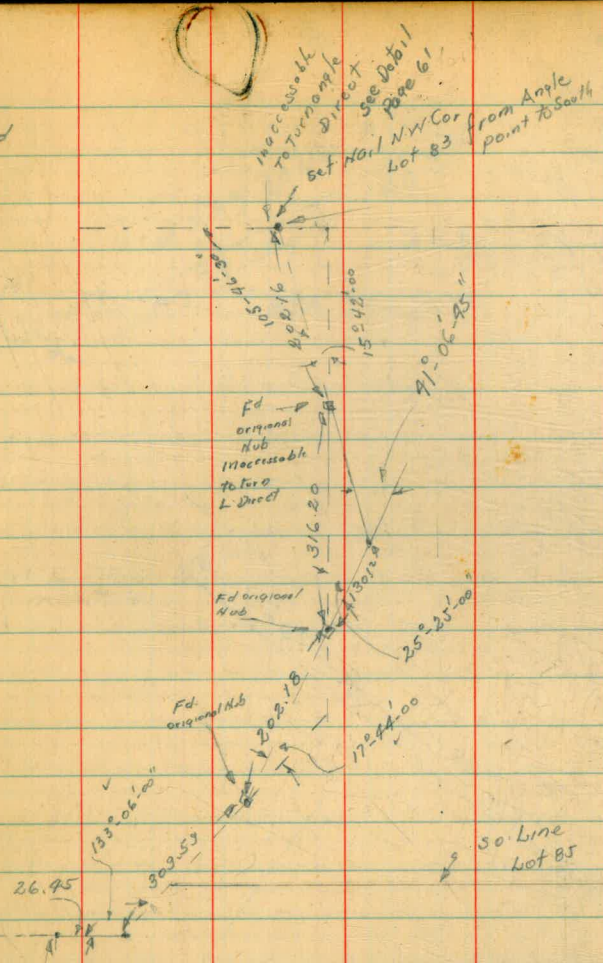 Inaccessable
To Turn angle
Direct
see Detail
Page 61
set Nail N.W Cor from Angle
Lot 83 point to South
105-46-30"
202.16
15°-42'-00
41°-06'-45"
Fd
origional
Hub
Inaccessable
to turn
L Direct
316.20
Fd origional
Hub
25°-25'-00"
202.18
Fd
origional Hub
17°-44'-00
133°-06'-00"
309.59
26.45
So. Line
Lot 85